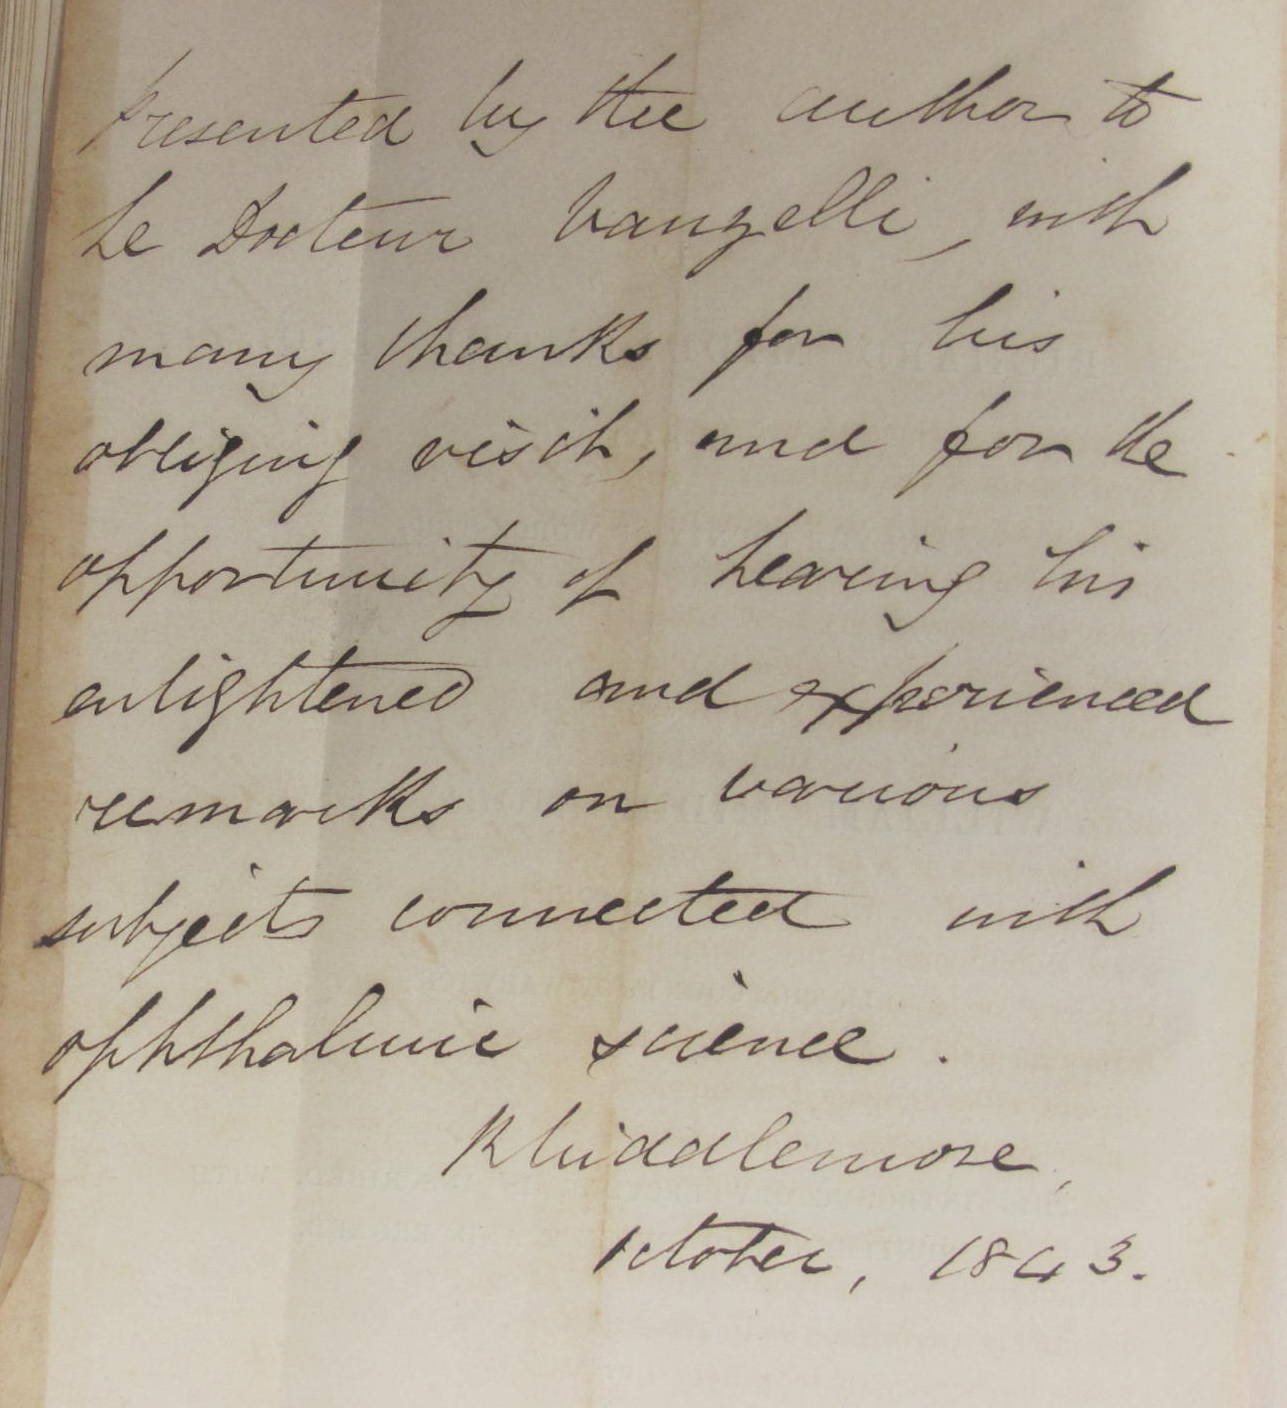 Presented by the author to
Le Docteur Vanzelli, with
many thanks for his
obliging visit, and for the
opportunity of hearing his
enlightened and experienced
remarks on various
subjects connected with
ophthalmic science.
R Middlemore,
October, 1843.